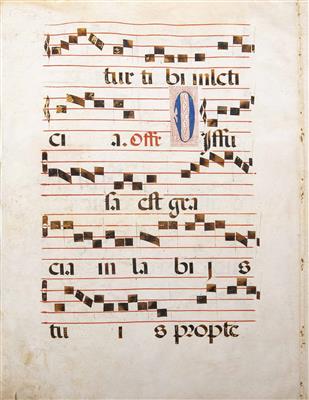 tur ti bi in leti
ci a. Offr Diffu
sa est gra
cia in la bi j s
tu i s propte